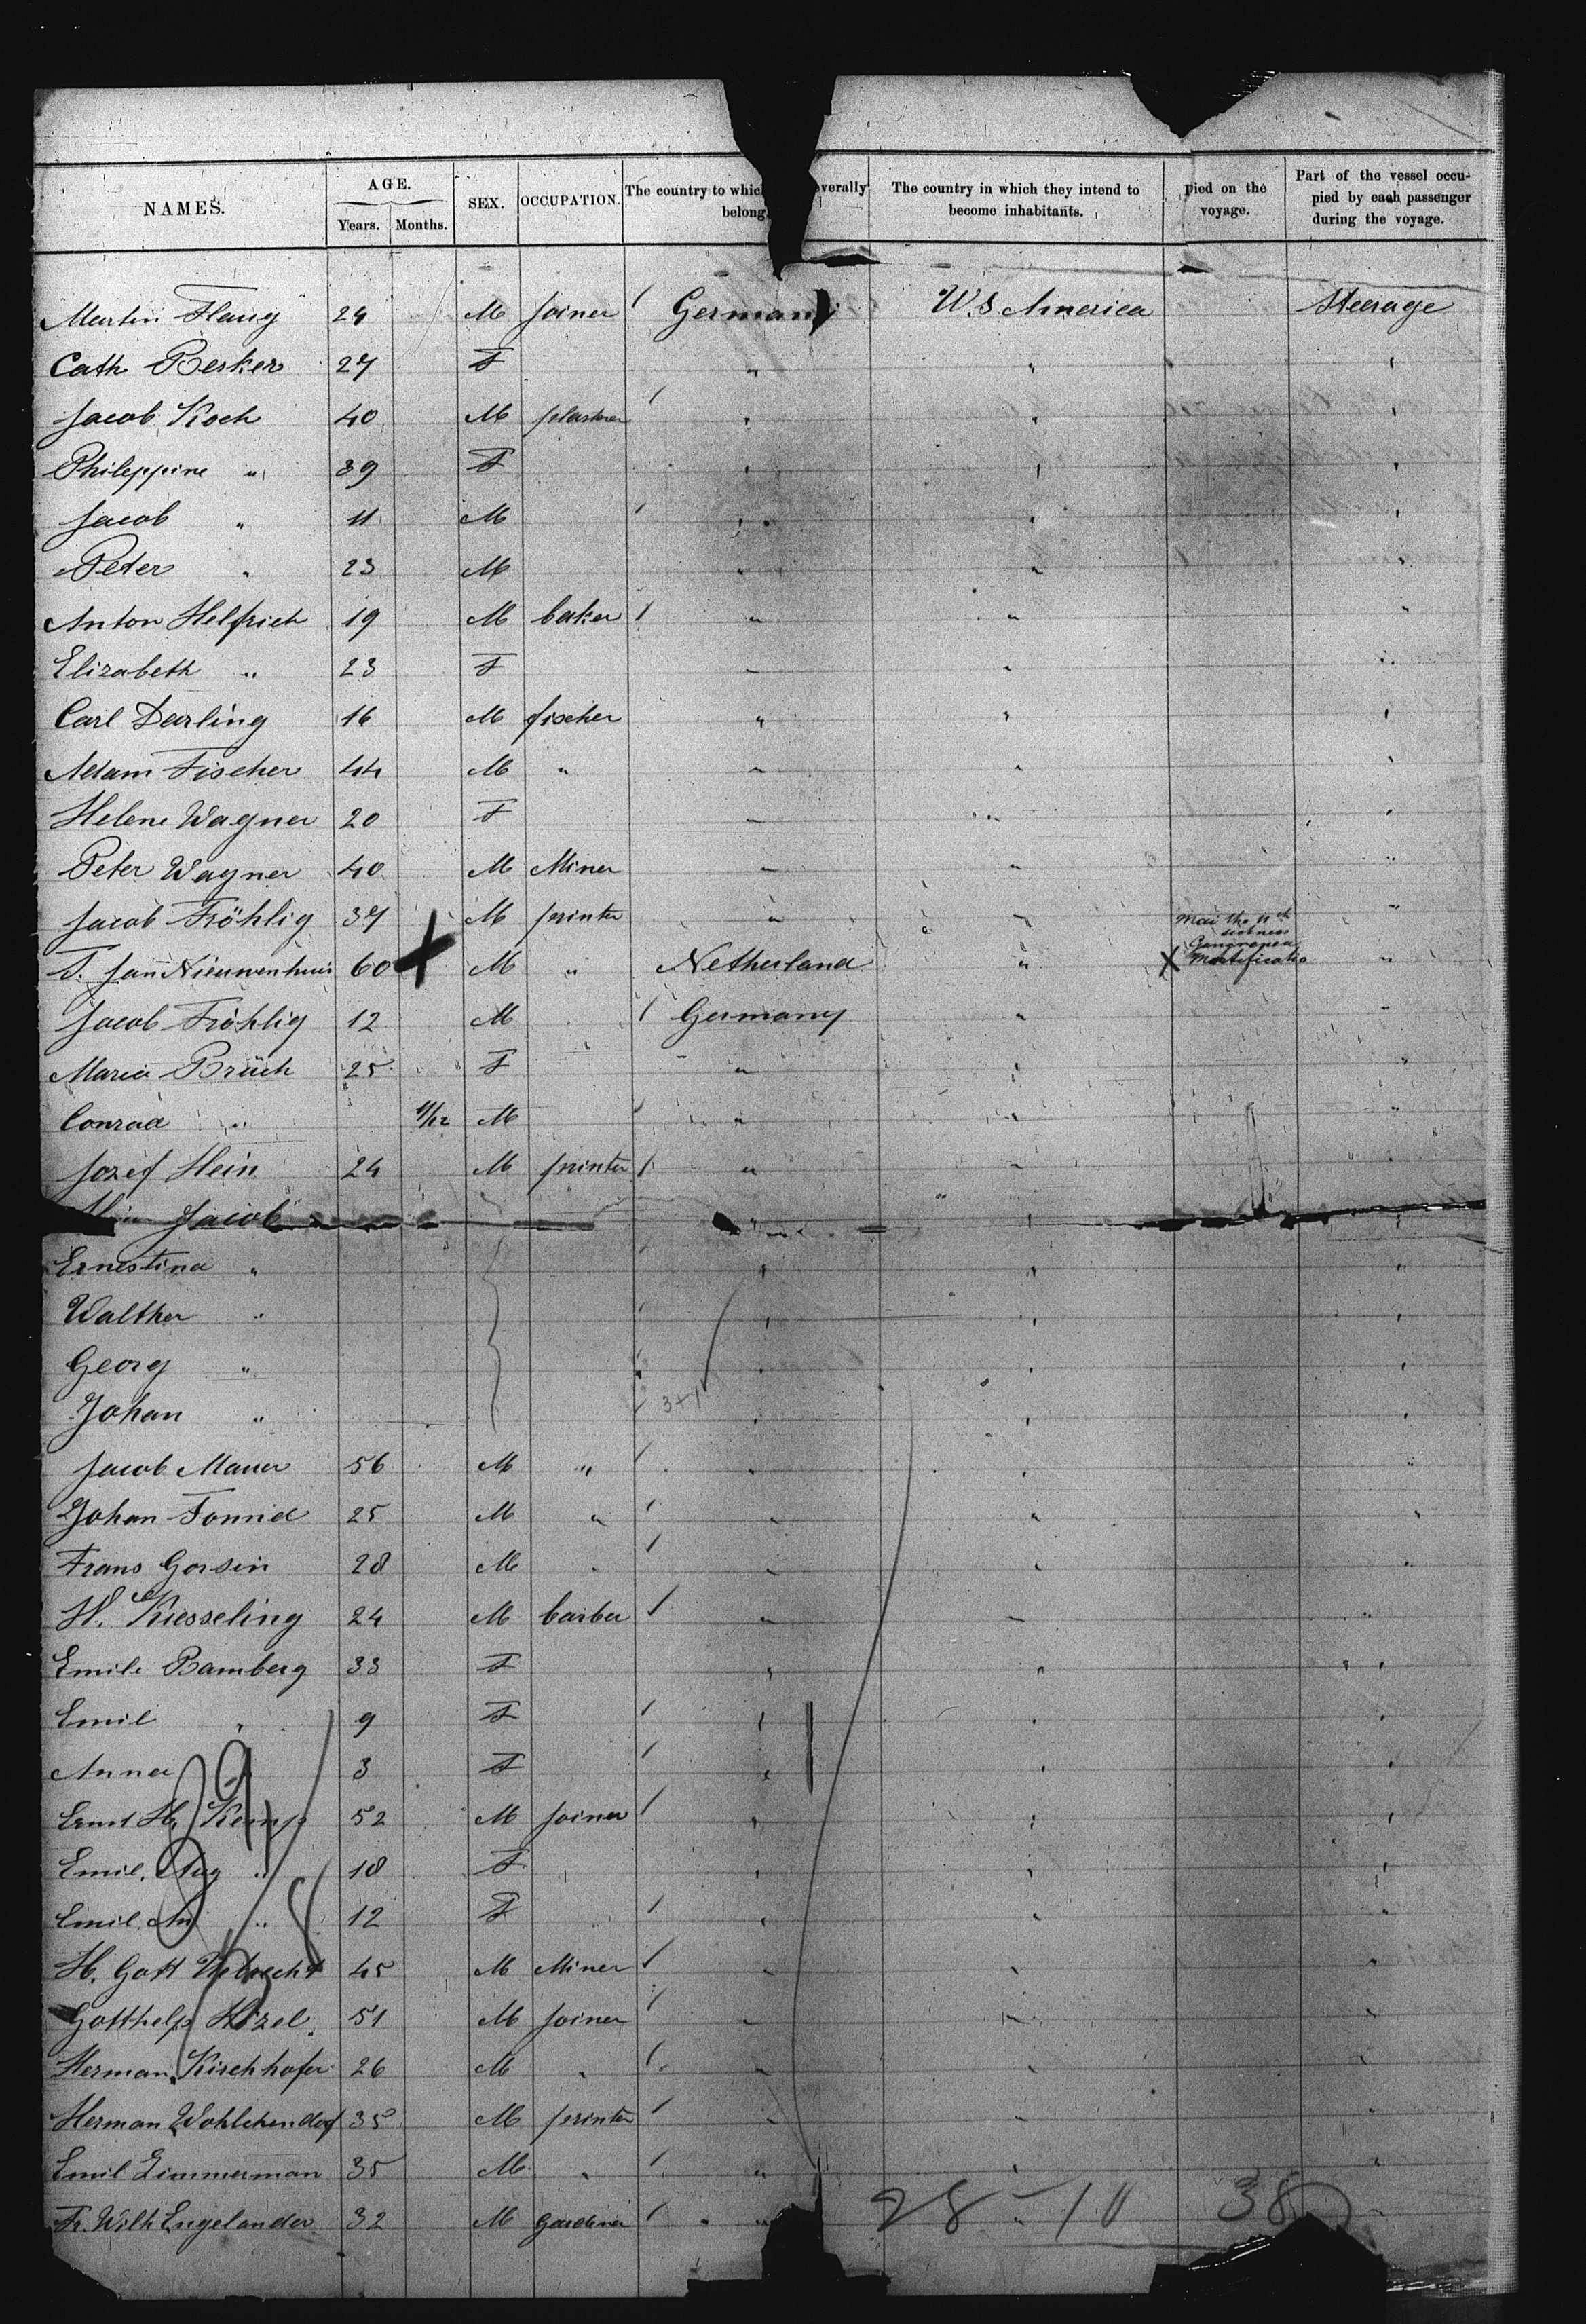 NAMES. AGE. Years. Months. SEX. OCCUPATION. The country to whic everally belong The country in which they intend to become inhabitants. pied on the voyage. Part of the vessel occupied by each passenger during the voyage.
Martin Flaug 24 M Joiner Germany U.S. America Steerage
Cath Besker 27 F " " "
Jacob Koch 40 M plasterer " " "
Phileppine " 39 F " " "
Jacob " 11 M " " "
Peter " 23 M " " "
Anton Helfrich 19 M baker " " "
Elizabeth " 23 F " " "
Carl Darling 16 M fischer " " "
Adam Fischer 44 M " " " "
Helene Wagner 20 F " " "
Peter Wagner 40 M Miner " " "
Jacob Fröhlig 37 M printer " " "
Mai the 11th sickness
T. Jan Nieuwenhuis 60 X M " Netherland " X Mortificatio "
Jacob Fröhlig 12 M Germany " "
Maria Brüch 25 F " " "
Conrad " 11/12 M " " "
Jozef Hein 24 M printer " " "
Jacob " " "
Ernestina " " " "
Walther " " " "
Georg " " " "
Johan " 3+1 " " "
Jacob Mauer 56 M " " " "
Johan Tonnid 25 M " " " "
Frans Gorsin 28 M " " " "
H. Kiesseling 24 M barber " " "
Emile Bamberg 33 F " " "
Emil " 9 F " " "
Anna " 3 F " " "
Ernst H. Kemp 52 M Joiner " " "
Emil. Aug " 18 F " " "
Emil. " 12 F " " "
H. Gott 45 M Miner " " "
Gotthelp Hözel 51 M Joiner " " "
Herman Kirchhofer 26 M " " " "
Herman Wohlehendorf 35 M printer " " "
Emil Zimmerman 35 M " " " "
Fr. Wilh Engelander 32 M Gardener " " "
28 - 10 38